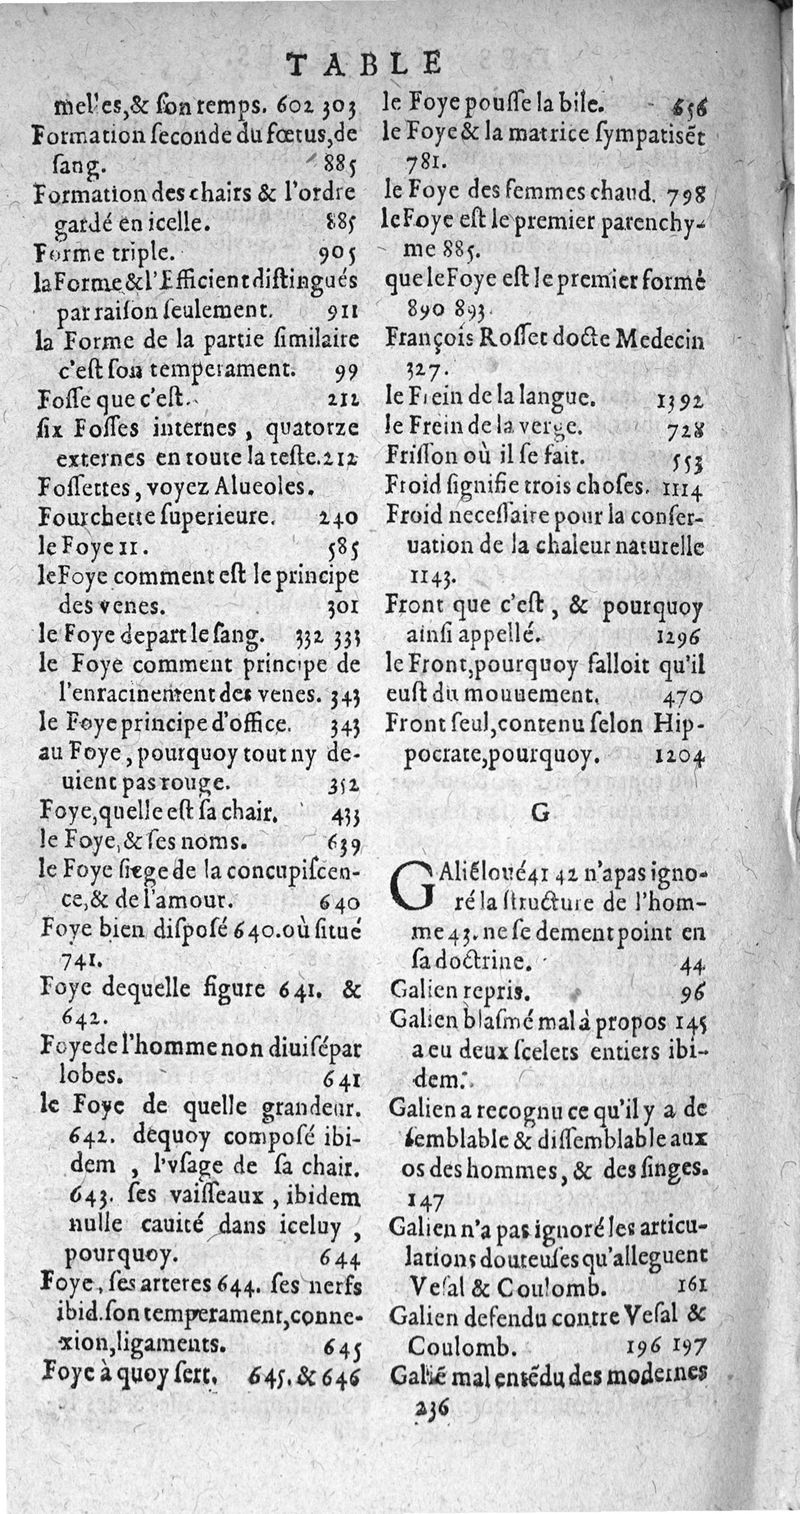 TABLE
melles,& ſon temps. 602 303
Formation ſeconde du fœtus,de
ſang. 885
Formation des chairs & l'ordre
gardé en icelle. 885
Forme triple. 905
la Forme&l'Efficient diſtingués
par raiſon ſeulement. 911
la Forme de la partie ſimilaire
c'eſt ſon temperament. 99
Foſſe que c'eſt. 212
ſix Foſſes internes , quatorze
externes en toute la teſte.212
Foſſettes, voyez Alueoles.
Fourchette ſuperieure. 240
le Foye 11. 585
le Foye comment eſt le principe
des venes. 301
le Foye depart le ſang. 332 333
le Foye comment principe de
l'enracinement des venes. 343
le Foye principe d'office. 343
au Foye, pourquoy tout ny de-
uient pas rouge. 352
Foye,quelle eſt ſa chair. 433
le Foye,& ſes noms. 639
le Foye ſiege de la concupiſcen-
ce,& de l'amour. 640
Foye bien diſpoſé 640.où ſitué
741.
Foye dequelle figure 641. &
642.
Foye de l'homme non diuiſé par
lobes. 641
le Foye de quelle grandeur.
642. dequoy compoſé ibi-
dem , l'vſage de ſa chair.
643. ſes vaiſſeaux , ibidem
nulle cauité dans iceluy ,
pourquoy. 644
Foye, ſes arteres 644. ſes nerfs
ibid.ſon temperament,conne-
xion,ligaments. 645
Foye à quoy ſert. 645.& 646
le Foye pouſſe la bile. 656
le Foye & la matrice ſympatisẽt
781.
le Foye des femmes chaud. 798
le Foye eſt le premier parenchy-
me 885.
que le Foye eſt le premier formé
890 893.
François Roſſet docte Medecin
327.
le Frein de la langue. 1392
le Frein de la verge. 728
Friſſon où il ſe fait. 553
Froid ſignifie trois choſes. 1114
Froid neceſſaire pour la conſer-
uation de la chaleur naturelle
1143.
Front que c'eſt , & pourquoy
ainſi appellé. 1296
le Front,pourquoy falloit qu'il
euſt du mouuement. 470
Front ſeul,contenu ſelon Hip-
pocrate,pourquoy. 1204
G
GAliẽ loué 41 42 n'a pas igno-
ré la ſtructure de l'hom-
me 43. ne ſe dement point en
ſa doctrine. 44
Galien repris. 96
Galien blaſmé mal à propos 145
a eu deux ſcelets entiers ibi-
dem.
Galien a recognu ce qu'il y a de
ſemblable & diſſemblable aux
os des hommes, & des ſinges.
147
Galien n'a pas ignoré les articu-
lations douteuſes qu'alleguent
Veſal & Coulomb. 161
Galien defendu contre Veſal &
Coulomb. 196 197
Galiẽ mal entẽdu des modernes
236